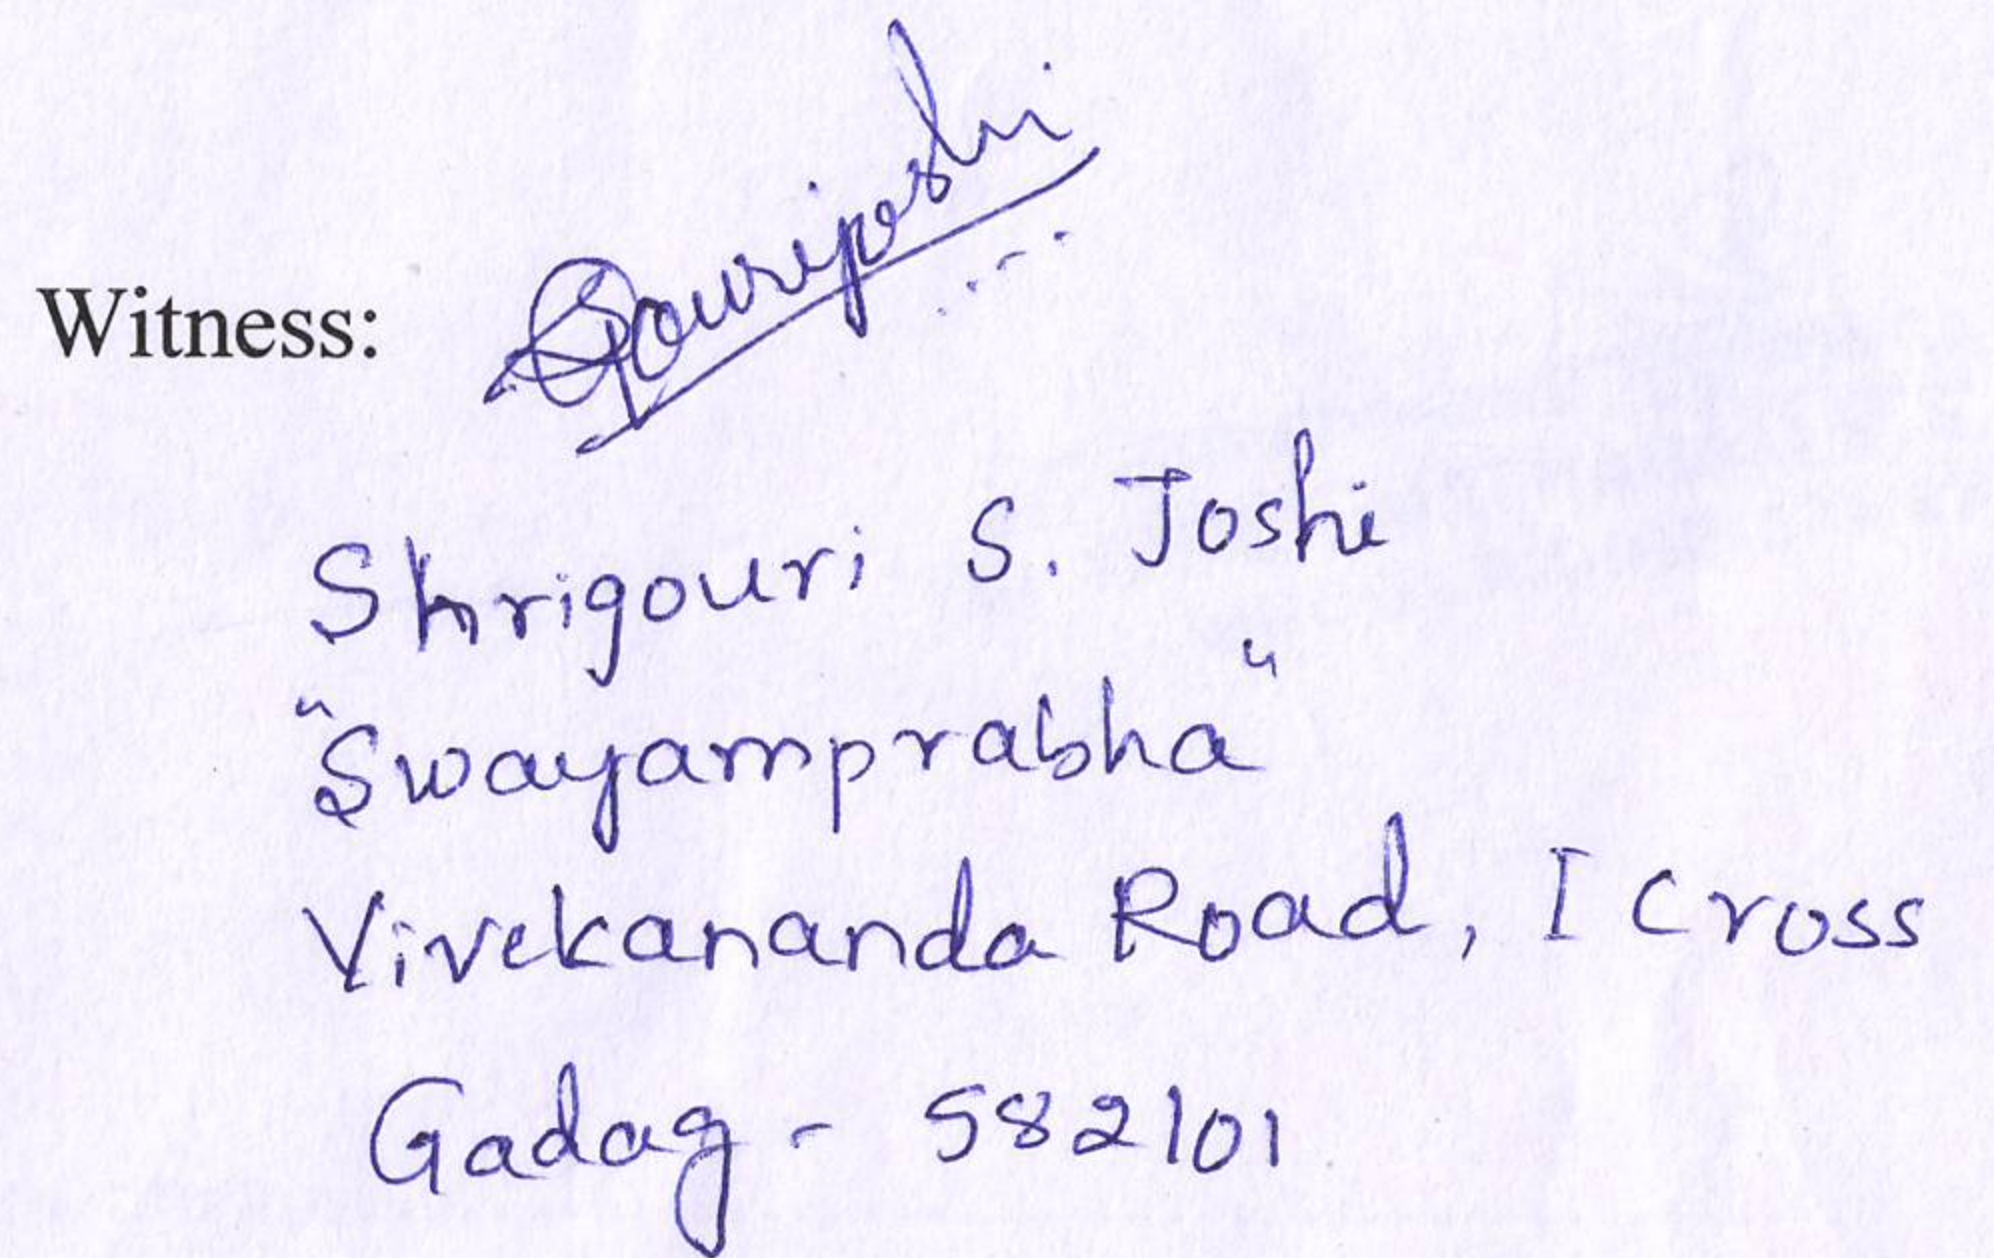 Witness: Gourijoshi
Shrigouri S. Joshi
"Swayamprabha"
Vivekananda Road, I Cross
Gadag - 582101